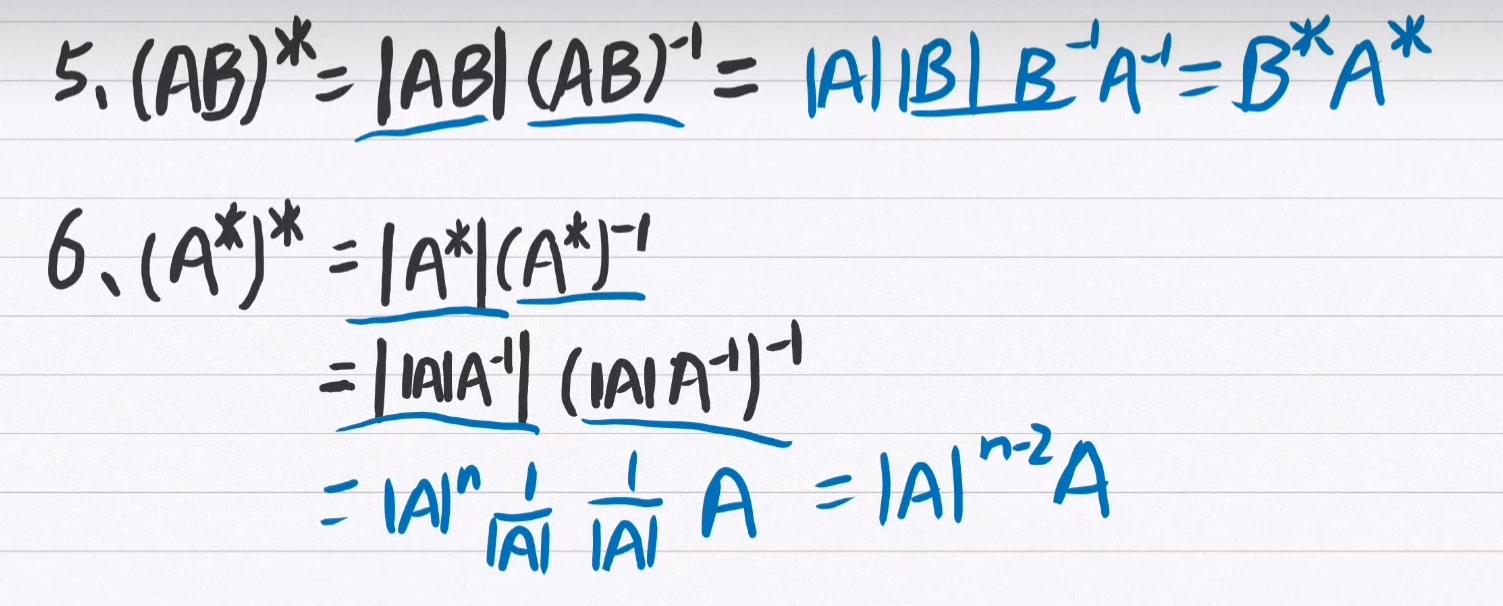 5、(AB)* = |AB| (AB)⁻¹ = |A| |B| B⁻¹A⁻¹ = B*A*
6、(A*)* = |A*|(A*)⁻¹
= ||A|A⁻¹| (|A|A⁻¹)⁻¹
= |A|ⁿ 1/|A| 1/|A| A = |A|ⁿ⁻²A